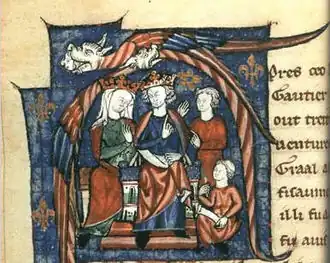 pres ceo
Gautier
out tret
uenture
Graal a
fisaum
il li fu
fu auis